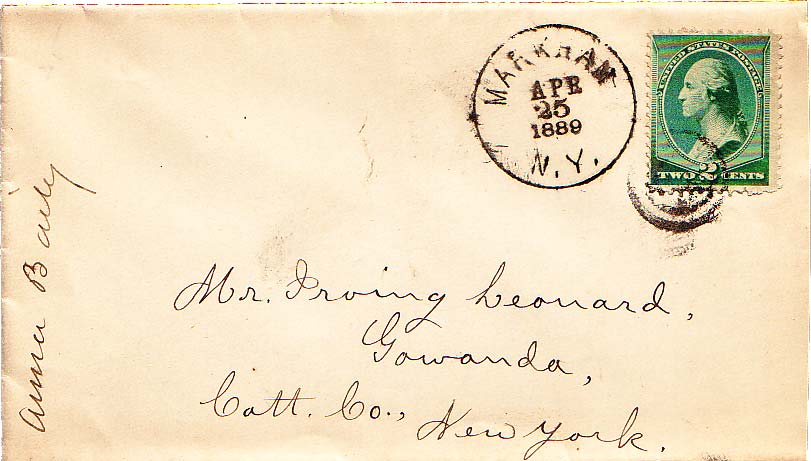 MARKHAM
APR
25
1889
N.Y.
UNITED STATES POSTAGE
TWO 2 CENTS
Anna Baily
Mr. Irving Leonard,
Gowanda,
Catt. Co.,
New York.